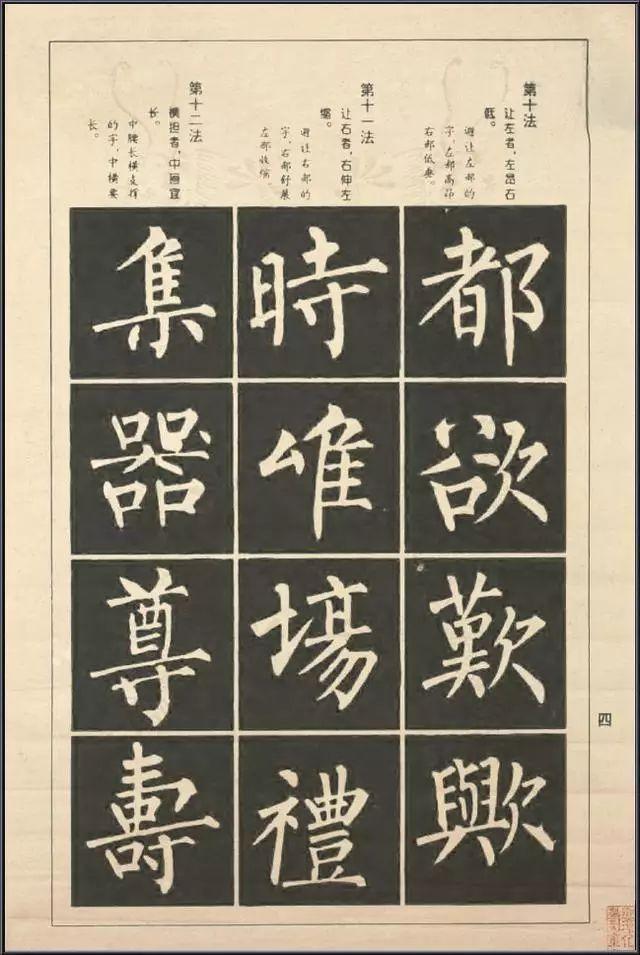 第十法
让左者，左昂右
低。
避让左部的
字，左部高昂
右部低垂。
都
欲
歎
歟
第十一法
让右者，右伸左
缩。
避让右部的
字，右部舒展
左部收缩。
時
唯
場
禮
第十二法
横担者，中画宜
长。
中腰长横支撑
的字，中横要
长。
集
器
尊
壽
四